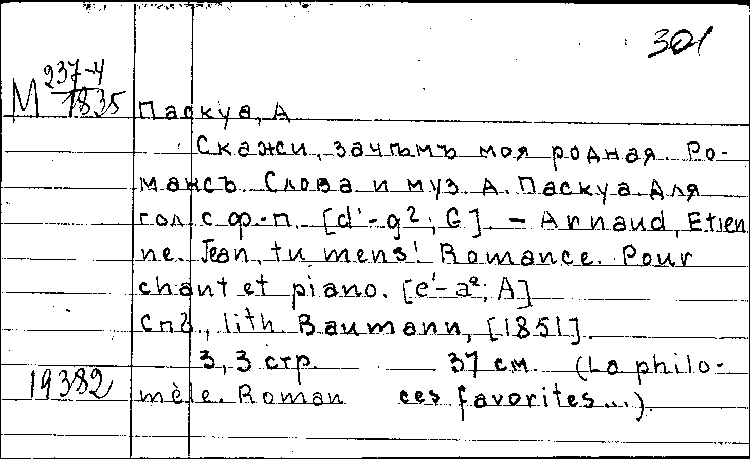 301
М 237-4
1835
Паскуа, А
Скажи, зачѣмъ моя родная. Ро-
мансъ. Слова и муз. А. Паскуа. Для
гол. с ф.-п. [d'-g²; G]. – Arnaud, Etien
ne. Jean, tu mens! Romance. Pour
chant et piano. [e'-a²; A]
Спб., lith. Baumann, [1851].
3, 3 стр. 37 см. (La philo-
19382 mèle. Roman ces favorites...).